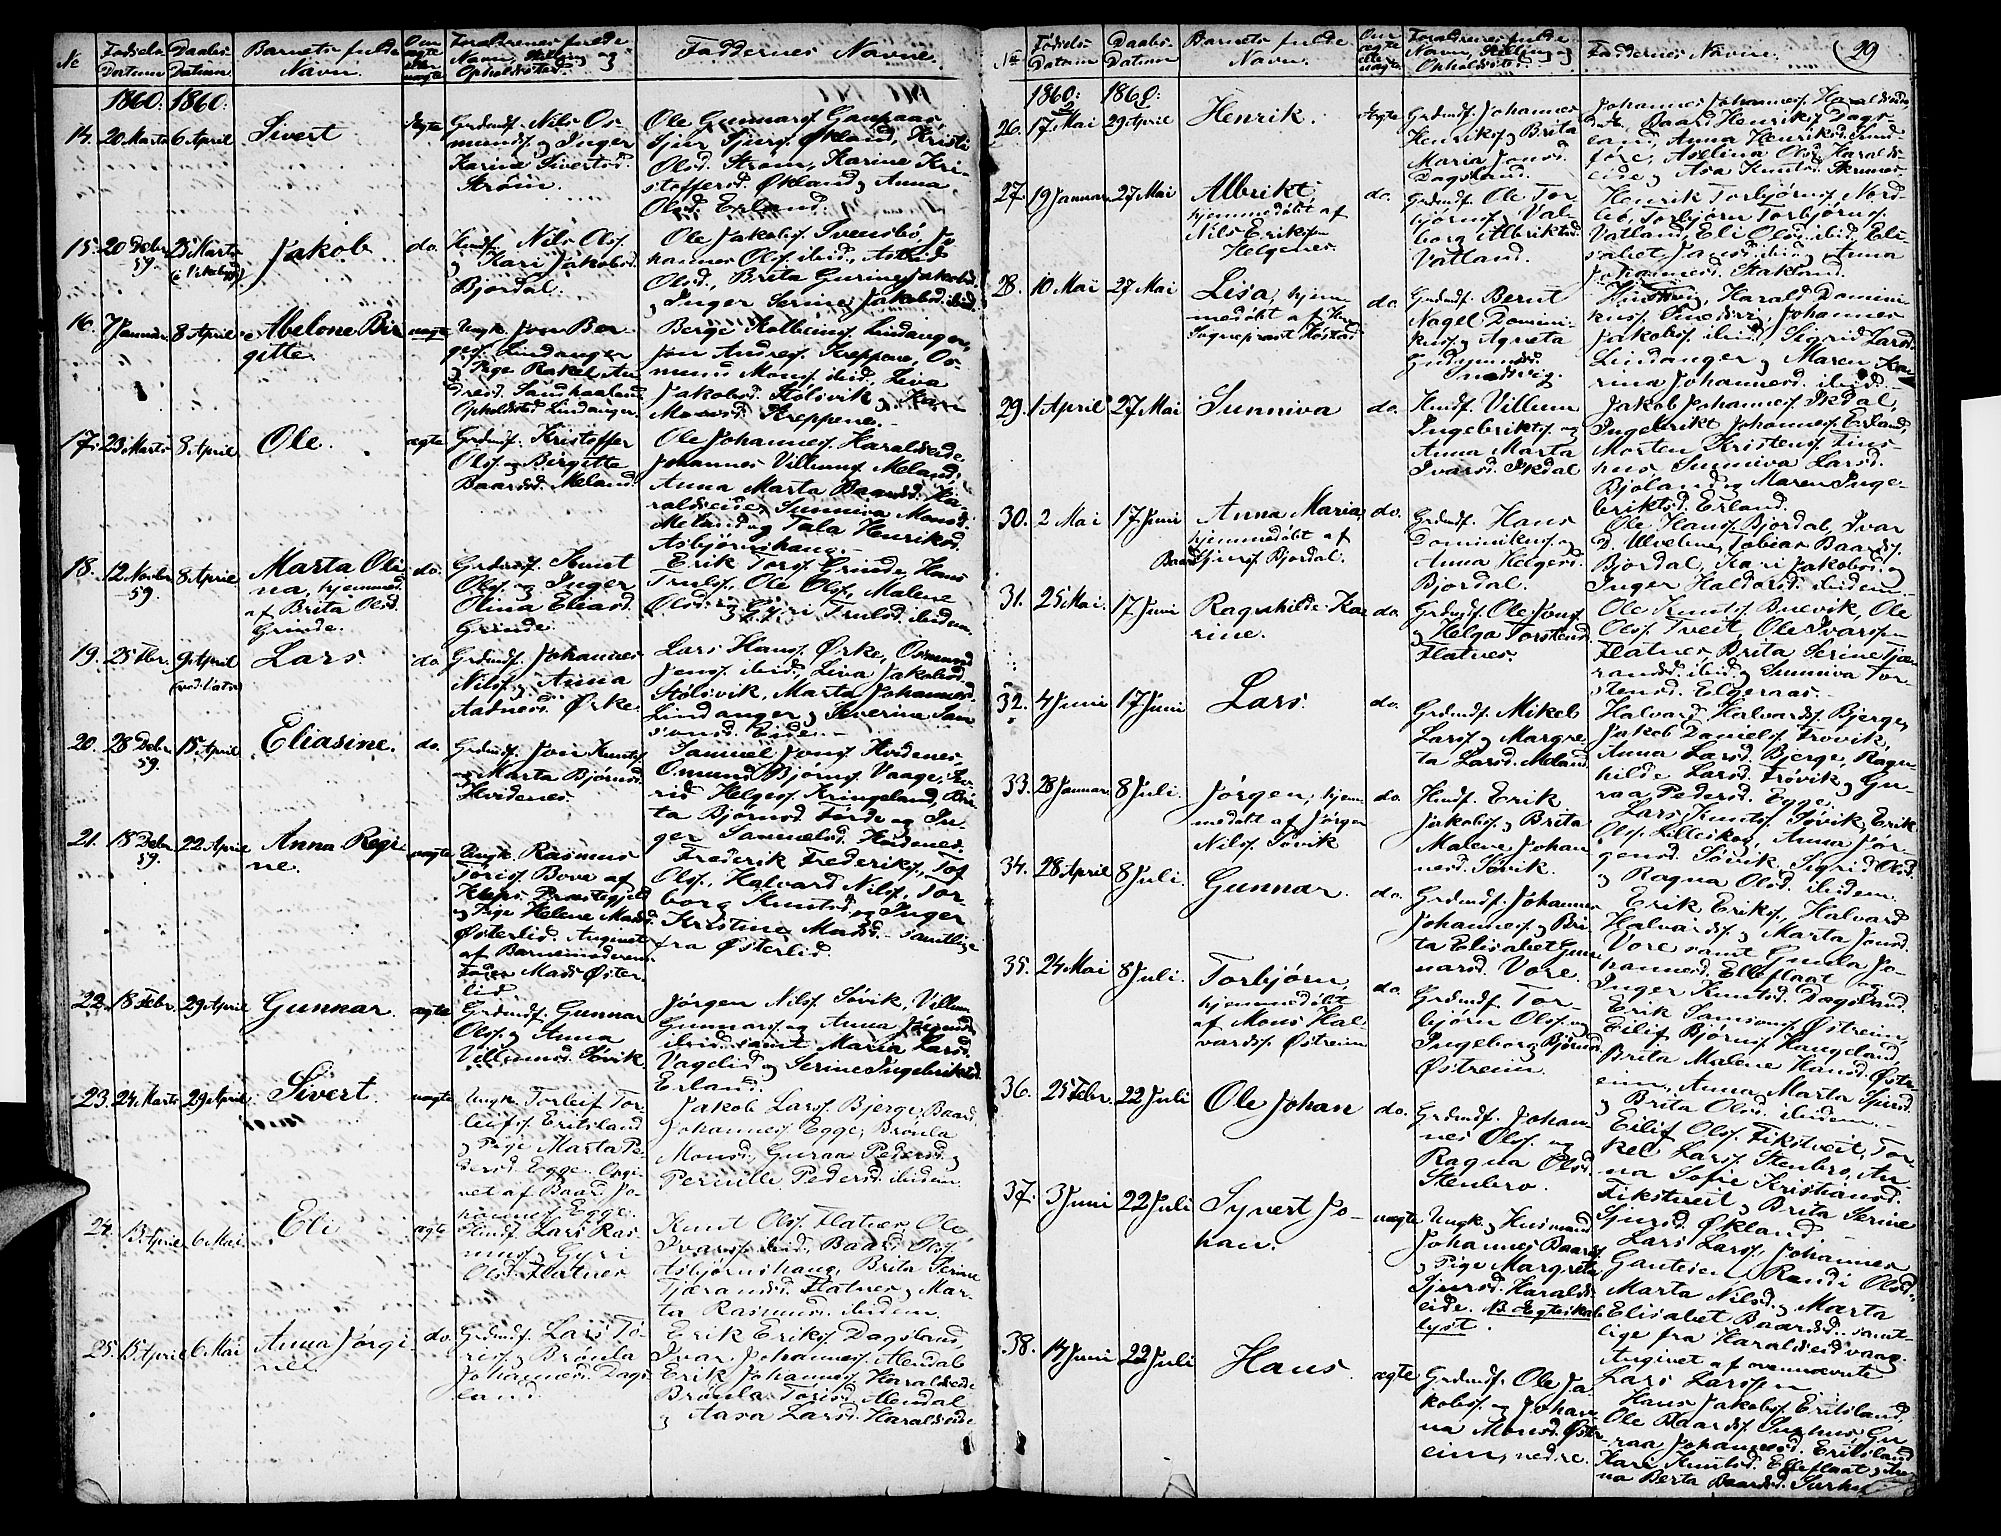 No Fødsels Datum Daabs Datum Barnets fulde Navn. Om ægte eller uægte Forældrenes fulde Navn, Stilling og Opholdssted. Faddernes Navne.
1860: 1860:
14. 20 Marts 6 April Sivert ægte
Grdmdf. Nils Os-
mundsf. og Inger
Karina Sivertsd.
Strøm.
Ole Gunnarsf. Gaupaas,
Sjur Sjursf. Økland, Kristi
Olsd. Strøm, Karine Kri-
stoffersd. Økland og Anna
Olsd. Erland.
15. 20 Debr. 59. 25 Marts Jakob do.
Husf. Nils Olsf.
og Kari Jakobsd.
Bjordal.
Ole Jakobsf. Svensbø, Jo
hannes Olsf. ibid., Astrid
Olsd., Brita Gurine Jakobsd.
og Inger Serine Jakobsd. ibid.
16. 7 Januar 8 April Abelone Bir
gitte uægte
Ungk. Jon Ber-
gesf. Lindanger
og Pige Rakel An
dresd. Sandhaaland
Opholdsted Lindanger.
Berge Kolbeinsf. Lindanger,
Jon Andresf. Kreppene, Os-
mund Monsf. ibid., Siva
Jakobsd. Stølsvik og Kari
Monsd. Kreppene.
17. 23 Marts 8 April Ole. ægte
Grdmdf. Kristoffer
Olsf. og Birgitte
Baardsd. Meland.
Ole Johannesf. Haraldseide,
Johannes Villumsf. Meland,
Anna Marta Baardsd. Ha-
raldseide, Sunniva Monsd.
Meland og Tala Henriksd.
Asbjørnshaug.
18. 12 Novbr. 59. 8 April Marta Oli
na, hjemmed.
af Brita Olsd.
Grinde. do.
Grdmdf. Knut
Olsf. og Inger
Olina Eliasd.
Grinde.
Erik Torsf. Grinde, Hans
Trulsf., Ole Olsf., Malene
Olsd. og Gyri Trulsd. ibidem.
19. 25 Fbr. 9 April Lars. do.
Grdmdf. Johannes
Nilsf. og Anna
Aadnesd. Ørke.
Lars Hansf. Ørke, Osmund
Jensf. ibid., Siva Jakobsd.
Stølsvik, Marta Johannesd.
Lindanger og Severine Sam
sonsd. Eide.
20. 28 Debr. 59. 15 April Eliasine. do.
Grdmdf. Jon Knutsf.
og Marta Bjørnsd.
Hvidenes.
Samuel Jonsf. Hvidenes,
Omund Bjørnsf. Vaage,
Helgesf. Kringeland, Bri-
ta Bjørnsd. Førde og In-
ger Samuelsd. Hvidenes.
21. 18 Debr. 59. 22 April Anna Regi
ne. uægte
Ungk. Rasmus
Torisf. Bove af
Kleps Præstegjeld
og Pige Helene Madsd.
Østerlid. Angivet
af Barnemoderens
Fader Mads Øster
lid
Frederik Frederiksf., Tof
Olsf., Halvard Nilsf., Tor
borg Knutsd. og Inger
Kristine Madsd. samtlige
fra Østerlid.
22. 18 Febr. 29 April Gunnar. ægte
Grdmdf. Gunnar
Olsf. og Anna
Villumsd. Søvik
Jørgen Nilsf. Søvik, Villum
Gunnarsf. og Anna Jørgensd.
ibid. samt Maria Larsd.
Vagelid og Serine Ingebriktsd.
Erland.
23. 24 Marts 29 April Sivert. uægte
Ungk. Torleif Tor-
leifsf. Eritsland
og Pige Marta Pe-
dersd. Egge. Opgi-
vet af Baard Jo
hannesf. Egge.
Jakob Larsf. Bjerge, Baard
Johannesf. Egge, Brønla
Monsd., Guraa Pedersd. og
Pernille Pedersd. ibidem.
24. 13 April 6 Mai Eli ægte
Husf. Lars Ras
musf. og Gyri
Olsd. Flatnes
Knut Olsf. Flatnes, Ole
Ivarsf. ibid., Baard Olsf.
Asbjørnshaug, Brita Serine
Tjærandsd. Flatnes og Mar-
ta Rasmusd. ibidem.
25. 15 April 6 Mai Anna Jørgi
ne do.
Grdmdf. Lars To-
risf. og Brønla
Johannesd. Dags
land.
Erik Eriksf. Dagsland,
Ivar Johannesf. Alendal
Erik Johannesf. Haraldseide
Brønla Torisd. Alendal
og Aasa Larsd. Haraldseide
No Fødsels Datum Daabs Datum Barnets fulde Navn. Om ægte eller uægte Forældrenes fulde Navn, Stilling og Opholdssted. Faddernes Navne. 29
1860: 1860:
26. 17 Mai 29 April Henrik. ægte
Grdmdf. Johannes
Henriksf. og Brita
Maria Jonsd.
Dagsland.
Johannes Johannesf. Haraldseide,
Baard Henriksf. Dags-
land, Anna Henriksd. Sund
føre, Aselina Olsd. Haralds-
eide og Asa Knutsd. Skrunes.
27. 19 Januar 27 Mai Albrikt,
hjemmedøbt af
Nils Eriksen
Helgenes. do.
Grdmdf. Ole Tor
bjørnsf. og Val-
borg Albriktsd.
Vatland.
Henrik Torbjørnsf. Nord-
bø, Torbjørn Torbjørnsf.
Vatland, Eli Olsd. ibid., Eli-
sabet Jansd. ibid. og Anna
Johannesd. Stakland.
28. 10 Mai 27 Mai Lisa, hjem
medøbt af Hr
Sogneprest Høstad do.
Grdmdf. Bernt
Nagel Domini-
kusf. og Agneta
Gudmundsd.
Smedsvig.
Harald Domini-
kusf. Smedsvig, Johannes
Jakobsf. ibid., Sigrid Larsd.
Lindanger og Maren Ka-
rina Johannesd. ibid.
29. 1 April 27 Mai Sunniva do.
Husf. Villum
Ingebriktsf. og
Anna Marta
Ivarsd. Ikdal
Jakob Johannesf. Ikdal,
Ingebrikt Johannesf. Erland,
Morten Kristensf. Fins-
hus, Sunniva Larsd.
Bjoland og Maren Inge-
briktsd. Erland.
30. 2 Mai 17 Juni Anna Maria,
hjemmedøbt af
Baard Sjursf. Bjordal. do.
Grdmdf. Hans
Dominikusf. og
Anna Helgesd.
Bjordal.
Ole Hansf. Bjordal, Ivar
D. Ulveknes, Tobias Baardsf.
Bjordal, Kari Jakobsd. og
Inger Haldorsd. ibidem.
31. 25 Mai. 17 Juni Ragnhilde Ka
rine. do.
Grdmdf. Ole Jonsf.
og Helga Torstensd.
Flatnes.
Ole Knutsf. Buevik, Ole
Olsf. Tveit, Ole Ivarsen
Flatnes, Brita Serine Tjæ-
randsd. ibid. og Sunniva Tor-
stensd. Elgeraas.
32. 4 Juni 17 Juni Lars. do.
Grdmdf. Mikel
Larsf. og Margre
ta Larsd. Meland
Halvard Halvardsf. Bjerge,
Jakob Danielsf. Frøvik,
Anna Larsd. Bjerge, Ragn
hilde Larsd. Frøvik og Gu-
raa Pedersd. Egge.
33. 28 Januar. 8 Juli. Jørgen, hjem
medøbt af Jørgen
Nilsf. Søvik do.
Husf. Erik
Jakobsf. og Brita
Malene Johan
nesd. Søvik.
Lars Knutsf. Søvik, Erik
Olsf. Lilleskog, Anna Jør-
gensd. Søvik, Sigrid Olsd.
og Ragna Olsd. ibidem.
34. 28 April 8 Juli. Gunnar. do.
Grdmdf. Johannes
Johannesf. og Bri-
ta Elisabet Gun
narsd. Vore.
Erik Eriksf., Halvard
Halvardsf. og Marta Jonsd.
Vore samt Gunla Jo-
hannesd. Elleflaat og
Inger Knutsd. Dagsland.
35. 24 Mai 8 Juli. Torbjørn,
hjemmedøbt
af Mons Hal-
vardsf. Østreim do.
Grdmdf. Tor-
bjørn Olsf. og
Ingeborg Bjørnsd.
Østreim
Erik Samsonsf. Østreim,
Eilif Bjørnsf. Haugeland,
Brita Malene Hansd. Østr-
eim, Anna Marta Sjursd.
og Brita Olsd. ibidem.
36. 25 Febr. 22 Juli Ole Johan do.
Grdmdf. Johan-
nes Olsf. og
Ragna Olsd.
Stenbro.
Eilif Olsf. Fikstveit, Tor-
kel Larsf. Stenbro, An-
na Sofie Kristiansd.
Fikstveit og Brita Serine
Sjursd. Økland
37. 3 Juni 22 Juli Syvert Jo-
han. uægte
Ungk. og Husmand
Johannes Baardsf.
og Pige Margreta
Sjursd. Haralds
eide. NB. Egteskab
lyst.
Lars Larsf., Johannes
Gautesen, Randi Olsd.
Marta Nilsd. og Marta
Elisabet Baardsd. samt-
lige fra Haraldseidvaag.
Angivet af ovennævnte
Lars Larssen
38. 14 Juni 22 Juli Hans ægte
Grdmdf. Ole Ja
kobsf. og Johan
na Monsd. Østr-
eim, nedre.
Hans Jakobsf. Eritsland,
Ole Baardsf. Surhus, Gu
raa Johannesd. Eritsland
Kari Knutsd. Elleflaat og An-
na Berta Baardsd. Surhus